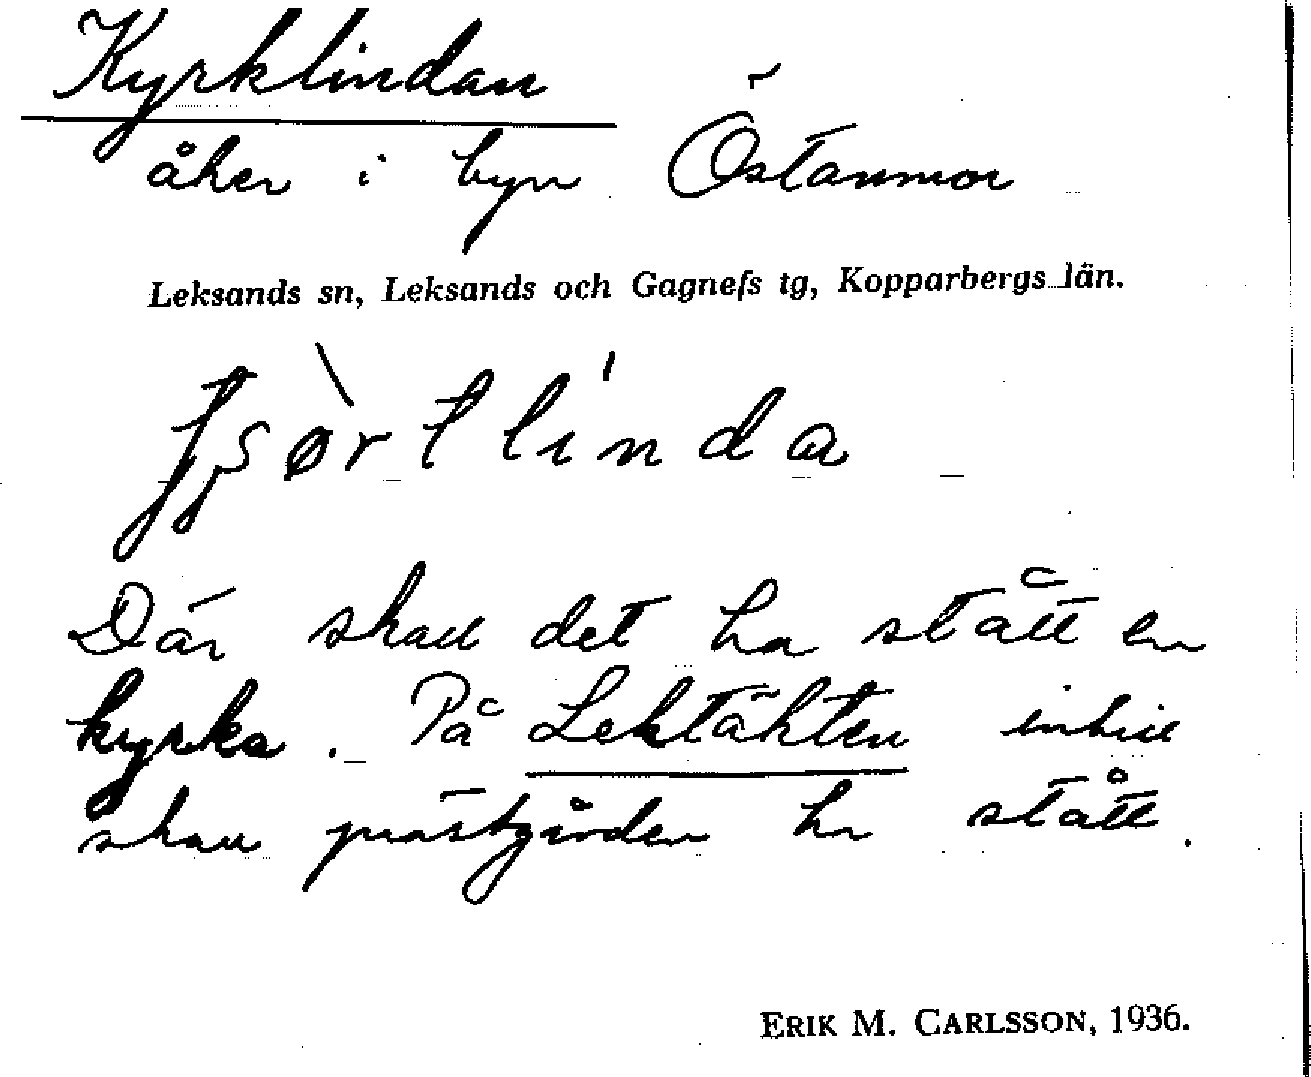 Kyrklindan
åker i byn Östanmor
Leksands sn, Leksands och Gagnefs tg, Kopparbergs län.
Där skall det ha stått en
kyrka. På Lektäkten intill
skall prästgården ha stått.
ERIK M. CARLSSON, 1936.